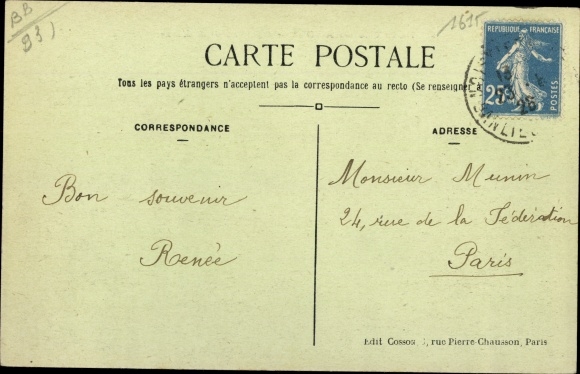 BB
93)
1615
REPUBLIQUE FRANÇAISE
25c
POSTES
CARTE POSTALE
Tous les pays étrangers n'acceptent pas la correspondance au recto (Se renseigner à
CORRESPONDANCE
Bon souvenir
Renée
ADRESSE
Monsieur Munin
24, rue de la Fédération
Paris
Edit Cosson, rue Pierre-Chausson, Paris